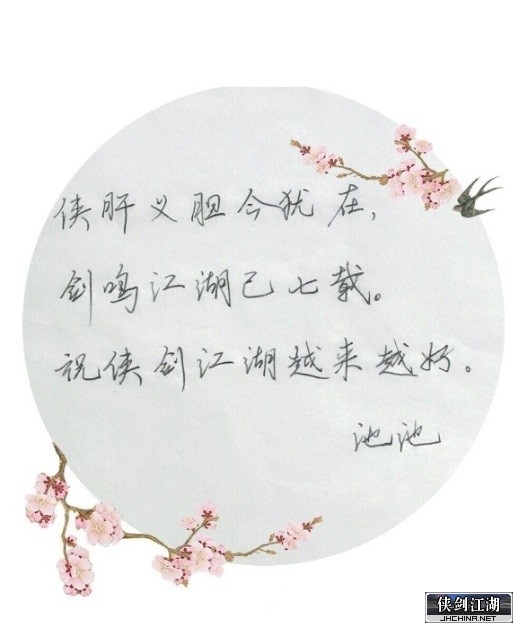 侠肝义胆今犹在，
剑鸣江湖已七载。
祝侠剑江湖越来越好。
池池
侠剑江湖
JHCHINA.NET